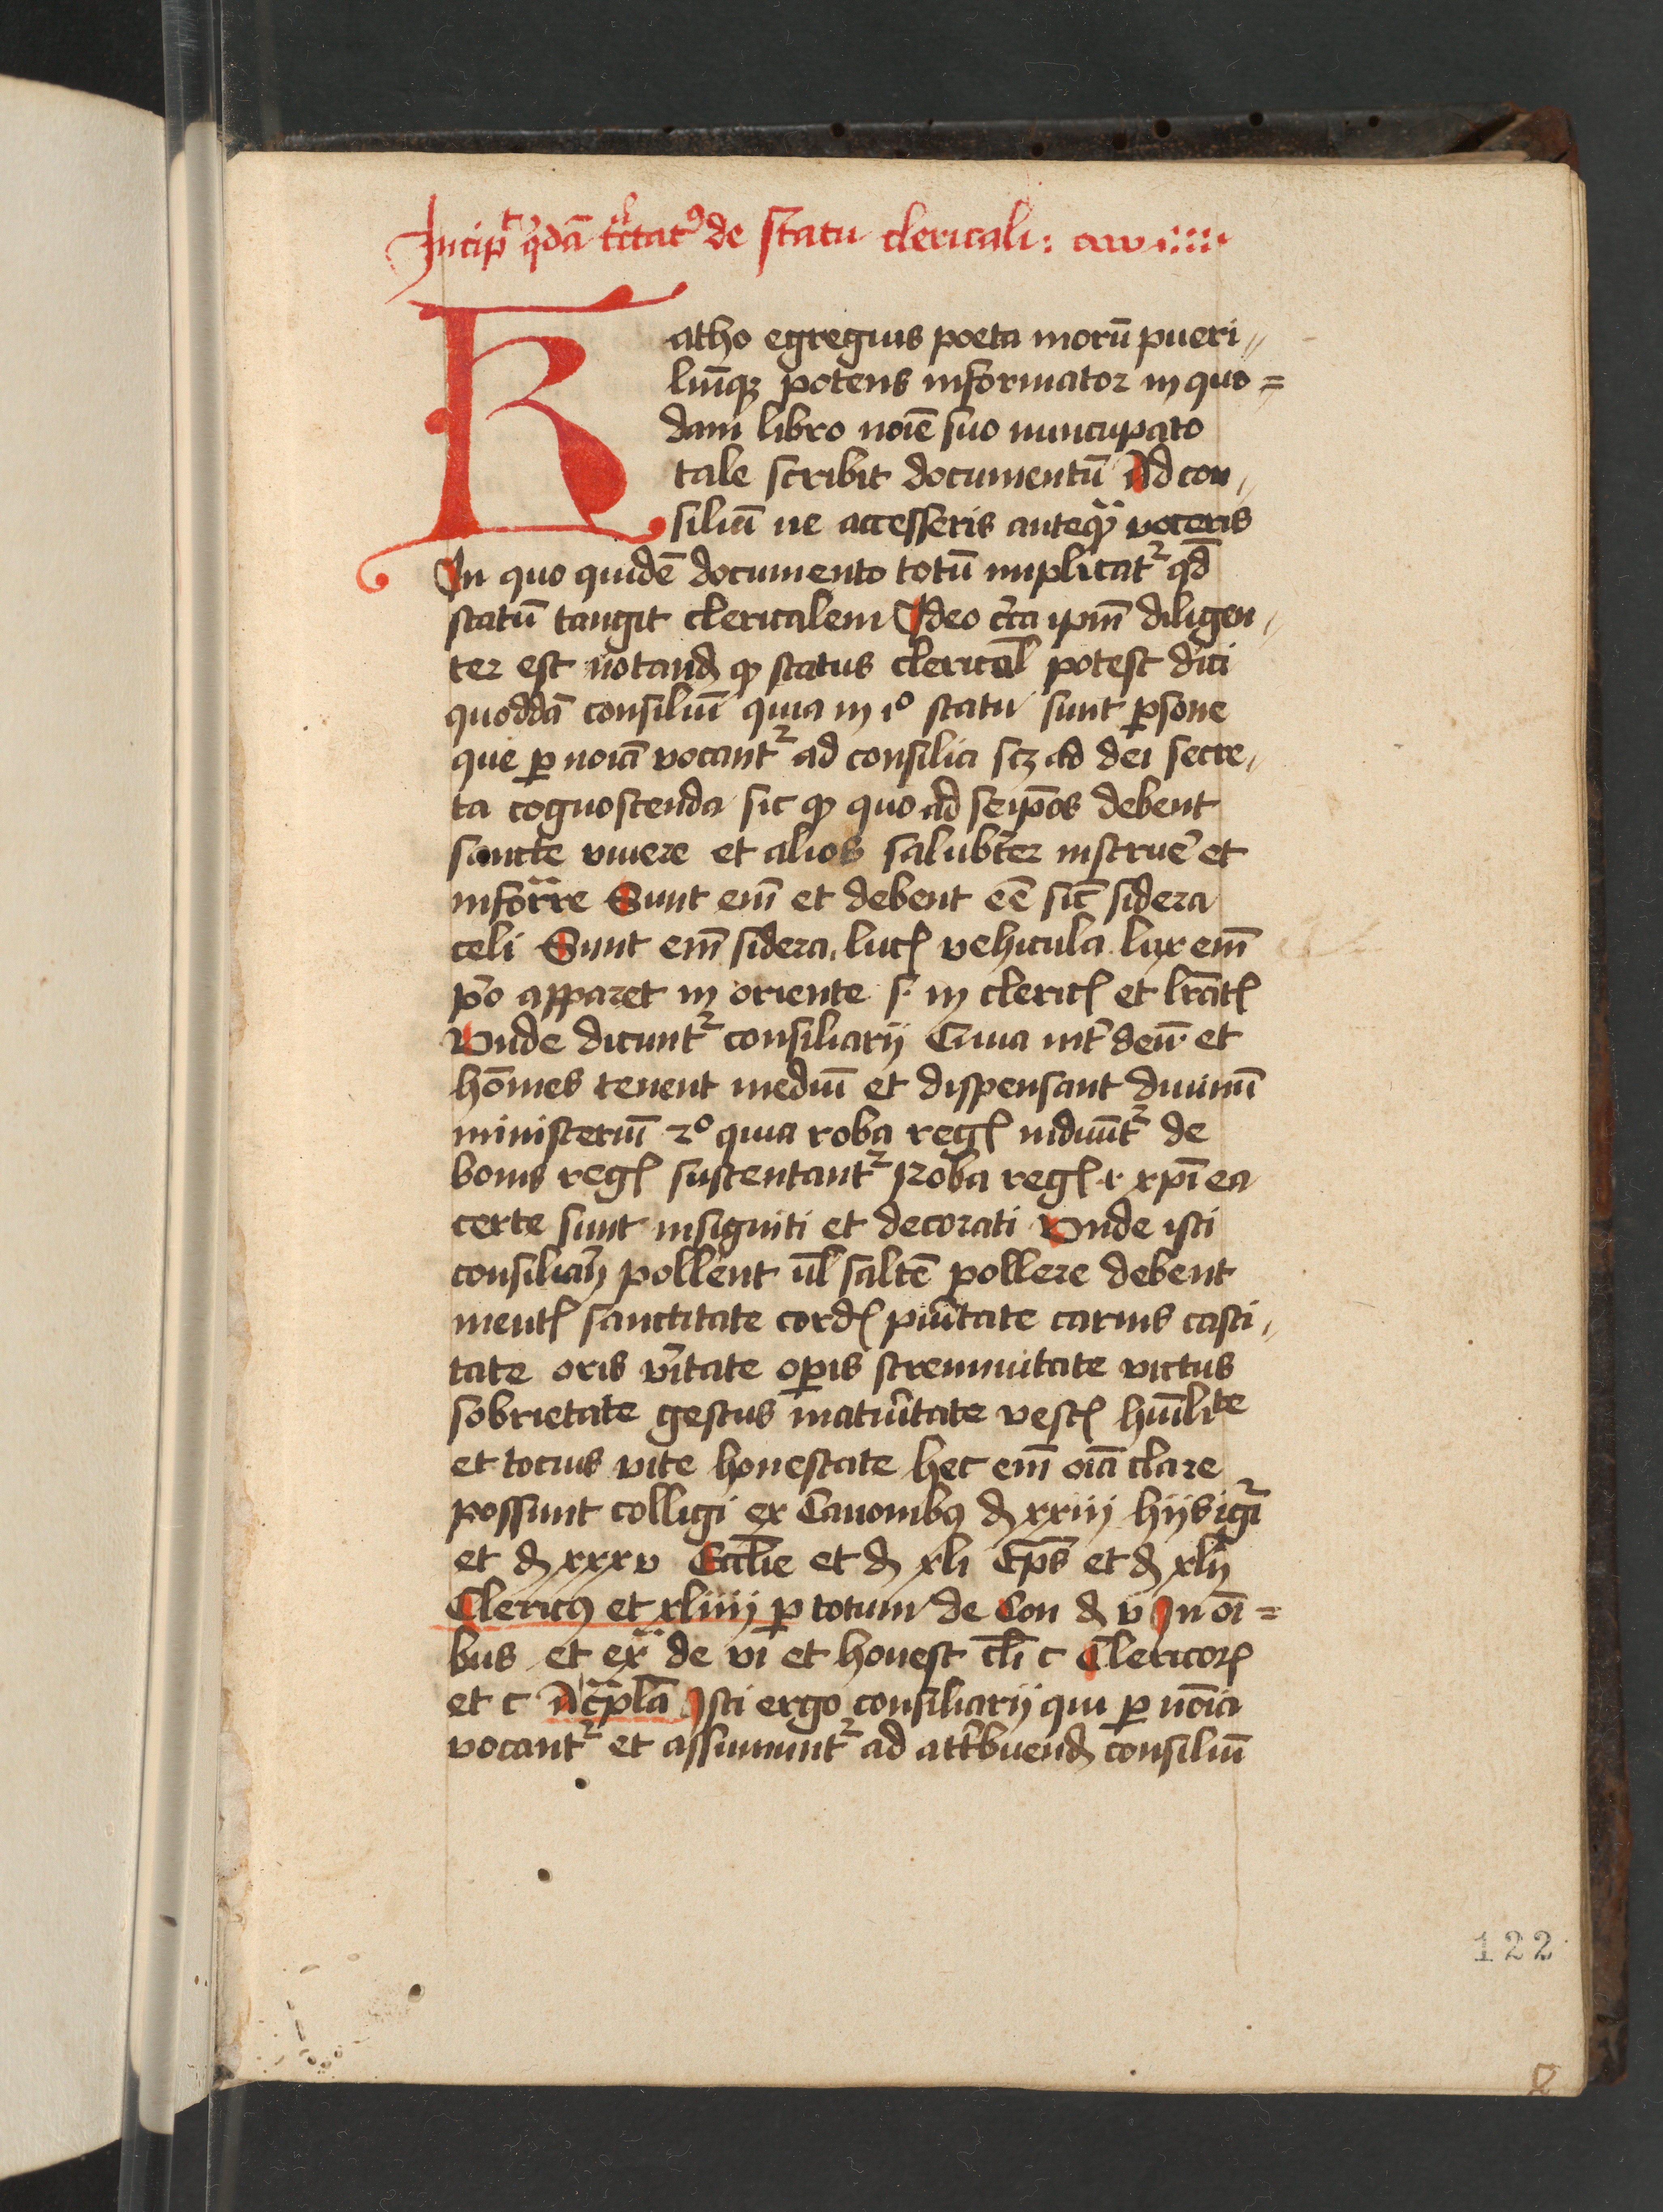 Incipᵗ qͥdā tͣctatꝰ de statu clericali:
Katho egregius poeta morū pueri„
liūqꝫ potens informator in quo=
dam libro noīe suo nuncupato
tale scribit documentū Ad con„
siliū ne accesseris anteqͣꝫ voceris
In quo quidē documento totū implicatᷣ qd̄
statū tangit clericalem Ideo cͥca ipm̄ diligen„
ter est notandꝫ ꝙ status clerical̄ potest dici
quoddā consiliū quia in 1º statu sunt ꝑsone
que ꝑ noīa vocantᷣ ad consilia scꝫ ad dei secre„
ta cognoscenda sic ꝙ quo ad seip̄os debent
sancte viuere et alios salubr̄ter instrue͛ et
infoͬͣre Sunt em̄ et debent eē sic̄ sidera
celi Sunt em̄ sidera lucꝭ vehicula lux em̄
pͥo apparet in oriente .s. in clericꝭ et lr̄atꝭ
Vnde dicuntᷣ consiliarij Quia int͛ deū et
hoīes tenent mediū et dispensant diuinū
ministeriū 2º quia roba regꝭ induūtᷣ de
bonis regꝭ sustentantᷣ Roba regꝭ .i. xp̄i ea
certe sunt insigniti et decorati Vnde isti
consiliarij pollent vl̄ saltē pollere debent
mentꝭ sanctitate cordꝭ puͥtate carnis casti„
tate oris v͛itate oꝑis strennuitate victus
sobrietate gestus matuͥtate vestꝭ humīlite
et tocius vite honestate hec em̄ oīa clare
possunt colligi ex Canonibꝫ dꝫ xxiij hijs igͥ
et dꝫ xxxv Eccl̄ie et dꝫ xli Ep̄s et dꝫ xlij
Clericꝰ et xliiij ꝑ totum de Con dꝫ v In oī=
bus et exͣ de vi et honest cl̄i c Clericoꝝ
et c Isti ergo consiliarij qui ꝑ noīa
vocantᷣ et assumuntᷣ ad attͥbuendꝫ consiliū
122